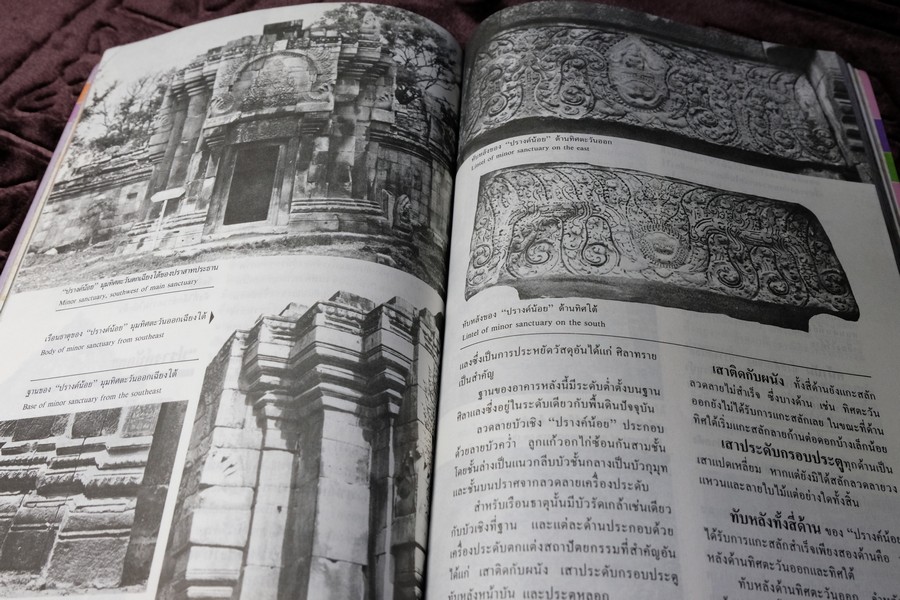 "ปรางค์น้อย" มุมทิศตะวันตกเฉียงใต้ของปราสาทประธาน
Minor sanctuary, southwest of main sanctuary
เรือนธาตุของ "ปรางค์น้อย" มุมทิศตะวันออกเฉียงใต้
Body of minor sanctuary from southeast
ฐานของ "ปรางค์น้อย" มุมทิศตะวันออกเฉียงใต้
Base of minor sanctuary from the southeast
ทับหลังของ "ปรางค์น้อย" ด้านทิศตะวันออก
Lintel of minor sanctuary on the east
ทับหลังของ "ปรางค์น้อย" ด้านทิศใต้
Lintel of minor sanctuary on the south
แลงซึ่งเป็นการประหยัดวัสดุอันได้แก่ ศิลาทราย
เป็นสำคัญ
ฐานของอาคารหลังนี้มีระดับต่ำตั้งบนฐาน
ศิลาแลงซึ่งอยู่ในระดับเดียวกับพื้นดินปัจจุบัน
ลวดลายบัวเชิง "ปรางค์น้อย" ประกอบ
ด้วยลายบัวคว่ำ ลูกแก้วอกไก่ซ้อนกันสามชั้น
โดยชั้นล่างเป็นแนวกลีบบัวชั้นกลางเป็นบัวกุมุท
และชั้นบนปราศจากลวดลายเครื่องประดับ
สำหรับเรือนธาตุนั้นมีบัวรัดเกล้าเช่นเดียว
กับบัวเชิงที่ฐาน และแต่ละด้านประกอบด้วย
เครื่องประดับตกแต่งสถาปัตยกรรมที่สำคัญอัน
ได้แก่ เสาติดกับผนัง เสาประดับกรอบประตู
ทับหลังหน้าบัน และประตูหลอก
เสาติดกับผนัง ทั้งสี่ด้านยังแกะสลัก
ลวดลายไม่สำเร็จ ซึ่งบางด้าน เช่น ทิศตะวัน
ออกยังไม่ได้รับการแกะสลักเลย ในขณะที่ด้าน
ทิศใต้เริ่มแกะสลักลายก้านต่อดอกบ้างเล็กน้อย
เสาประดับกรอบประตูทุกด้านเป็น
เสาแปดเหลี่ยม หากแต่ยังมิได้สลักลวดลายวง
แหวนและลายใบไม้แต่อย่างใดทั้งสิ้น
ทับหลังทั้งสี่ด้าน ของ "ปรางค์น้อย
ได้รับการแกะสลักสำเร็จเพียงสองด้านคือ
หลังด้านทิศตะวันออกและทิศใต้
ทับหลังด้านทิศตะวันออก